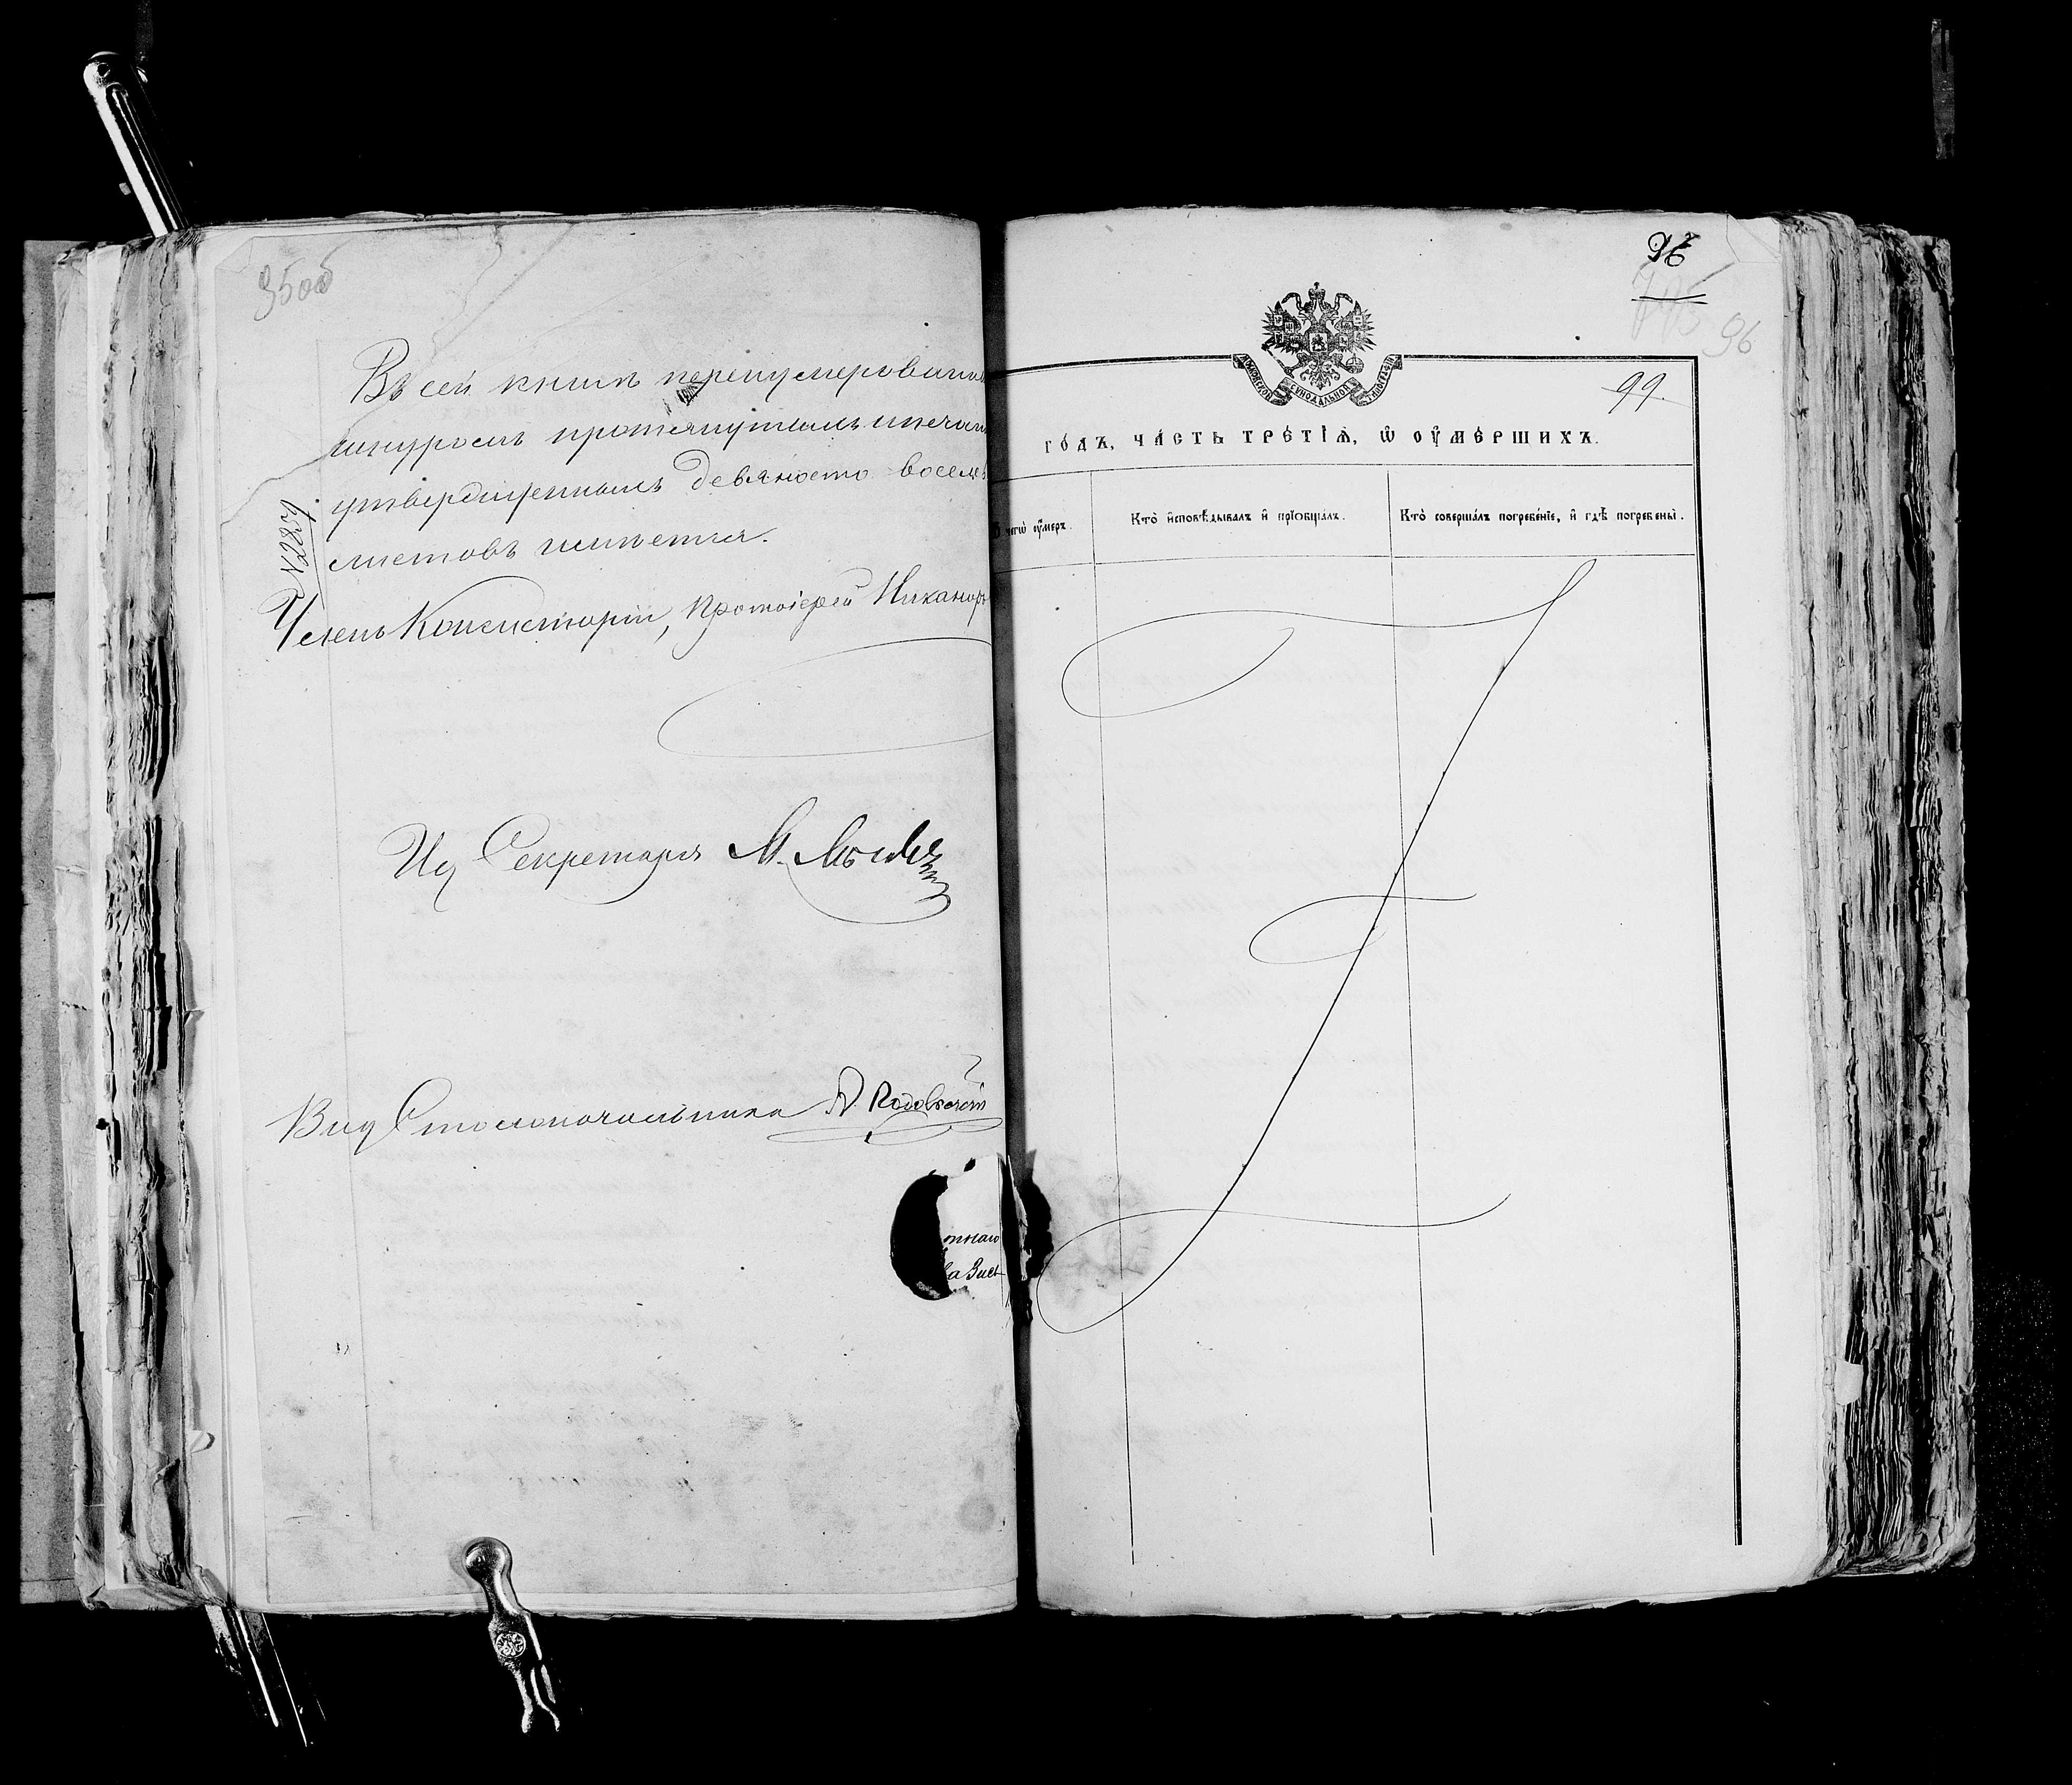 95 об
Въ сей книгѣ перенумерованныхъ
шнуромъ протянутымъ и печатью
утвержденнымъ девяносто восемь
листовъ имѣется.
№ 2859
Членъ Консисторіи, Протоіерей Никаноръ
Ид Секретаря М.
Вид Столоначальника А.
тнаго
96
96
99.
МОСКОВСКОЙ СѴНОДАЛЬНОЙ ТИПОГРАФІИ
го́дъ, ча́сть тре́тїѧ, ѡ҆ ᲂу҆ме́ршихъ.
чегѡ̀ ᲂу҆́меръ.
Кто̀ и҆сповѣ́дывалъ и҆ прїѡбща́лъ.
Кто̀ соверша́лъ погребе́нїе, и҆ гдѣ̀ погребены̀.